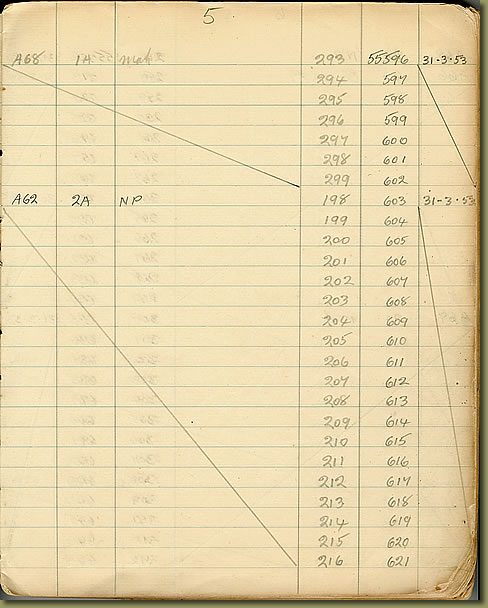 5
A68 1A Met 293 55596 31-3-53
294 597
295 598
296 599
297 600
298 601
299 602
A62 2A NP 198 603 31-3-53
199 604
200 605
201 606
202 607
203 608
204 609
205 610
206 611
207 612
208 613
209 614
210 615
211 616
212 617
213 618
214 619
215 620
216 621